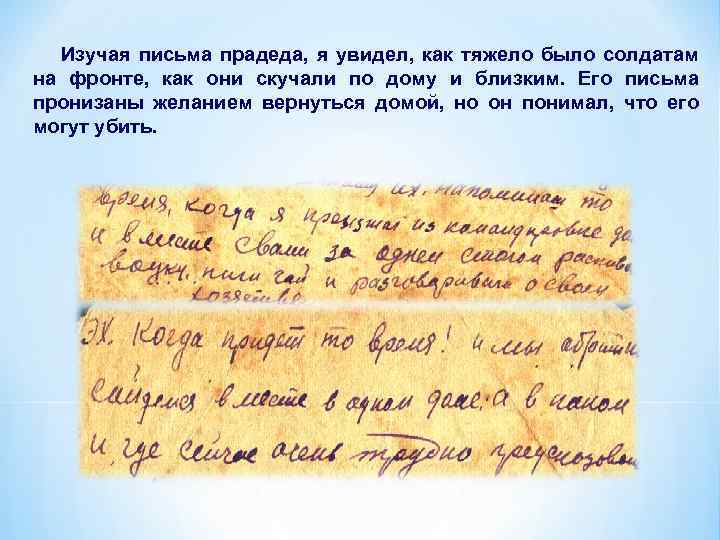 Изучая письма прадеда, я увидел, как тяжело было солдатам
на фронте, как они скучали по дому и близким. Его письма
пронизаны желанием вернуться домой, но он понимал, что его
могут убить.
их. напоминат то
время, когда я приезжал из командировке до
и вместе свами за одним столом распива
водку, пили чай и разговаривали о своем
хозяйстве
Эх. Когда придет то время! и мы обратн
сайдемся вместе в одном доме. а в каком
и где сейчас очень трудно предсказоват